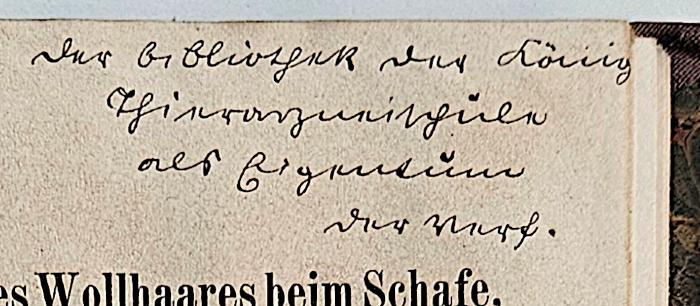 der Bibliothek der König
Thierarzneischule
als Eigentum
der Verf.
es Wollhaares beim Schafe.